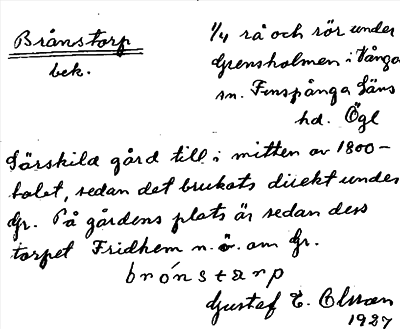 Brånstorp
bek.
1/4 rå och rör under
Grensholmen i Vånga
sn. Finspånga Läns
hd. Ögl
Särskild gård till i mitten av 1800-
talet, sedan det brukats direkt under
Gr. På gårdens plats är sedan dess
torpet Fridhem n.ö. om Gr.
brónstarp
Gustaf E. Olsson
1927